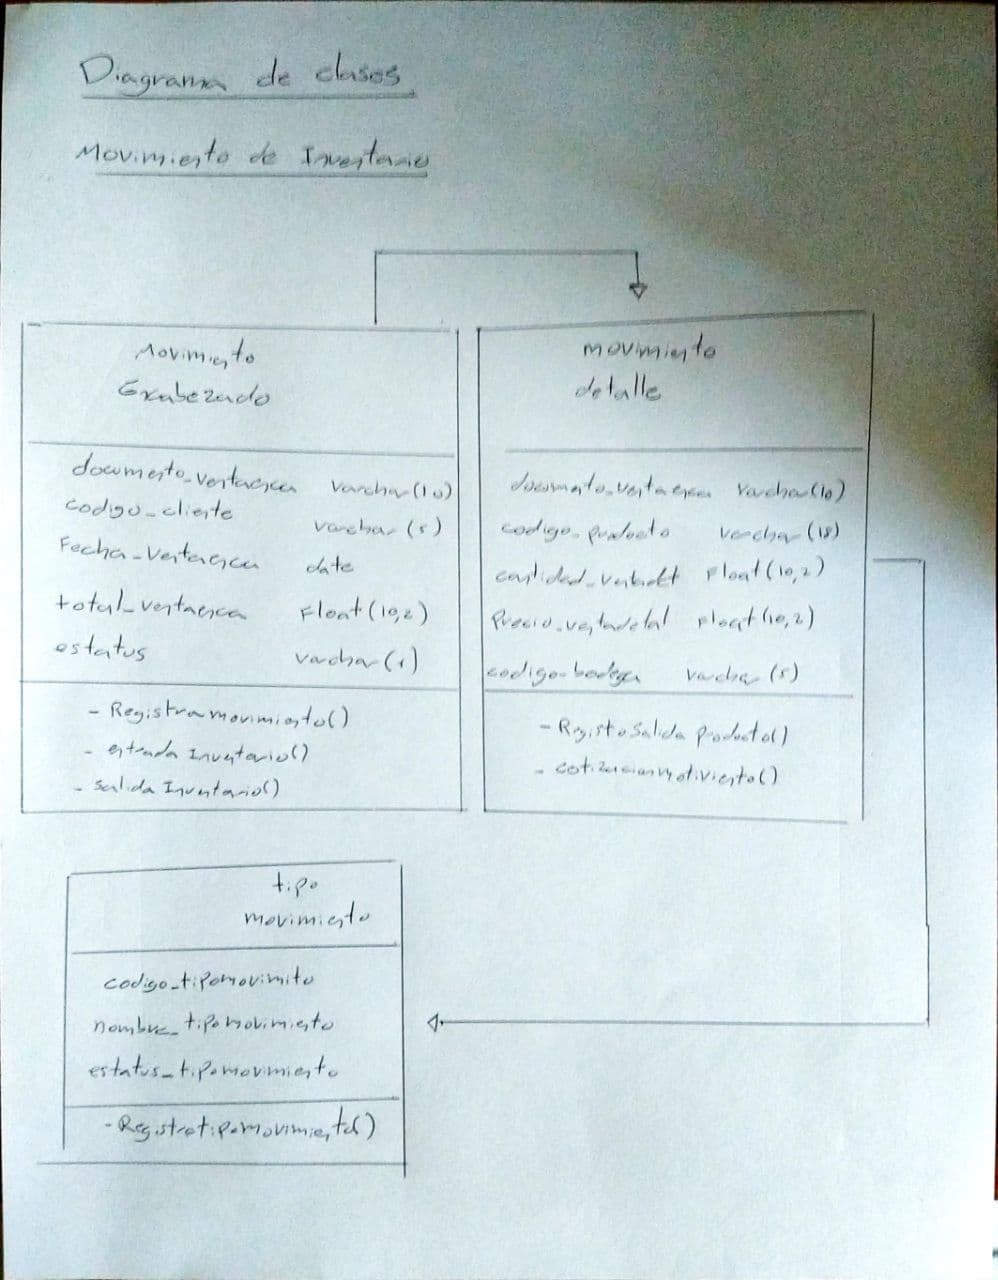 Diagrama de clases
Movimiento de Inventario
Movimiento
Encabezado
documento_ventaenca varchar(10)
codigo_cliente varchar(5)
Fecha_ventaenca date
total_ventaenca Float(10,2)
estatus varchar(1)
- Registramovimiento()
- entrada Inventario()
- Salida Inventario()
movimiento
detalle
documento_ventaenca varchar(10)
codigo_producto varchar(18)
cantidad_ Float(10,2)
Precio_ventadetal Float(10,2)
codigo_bodega varchar(5)
- Registro Salida producto()
tipo
movimiento
codigo_tipomovimito
nombre_tipomovimiento
estatus_tipomovimiento
- Registrotipomovimiento()